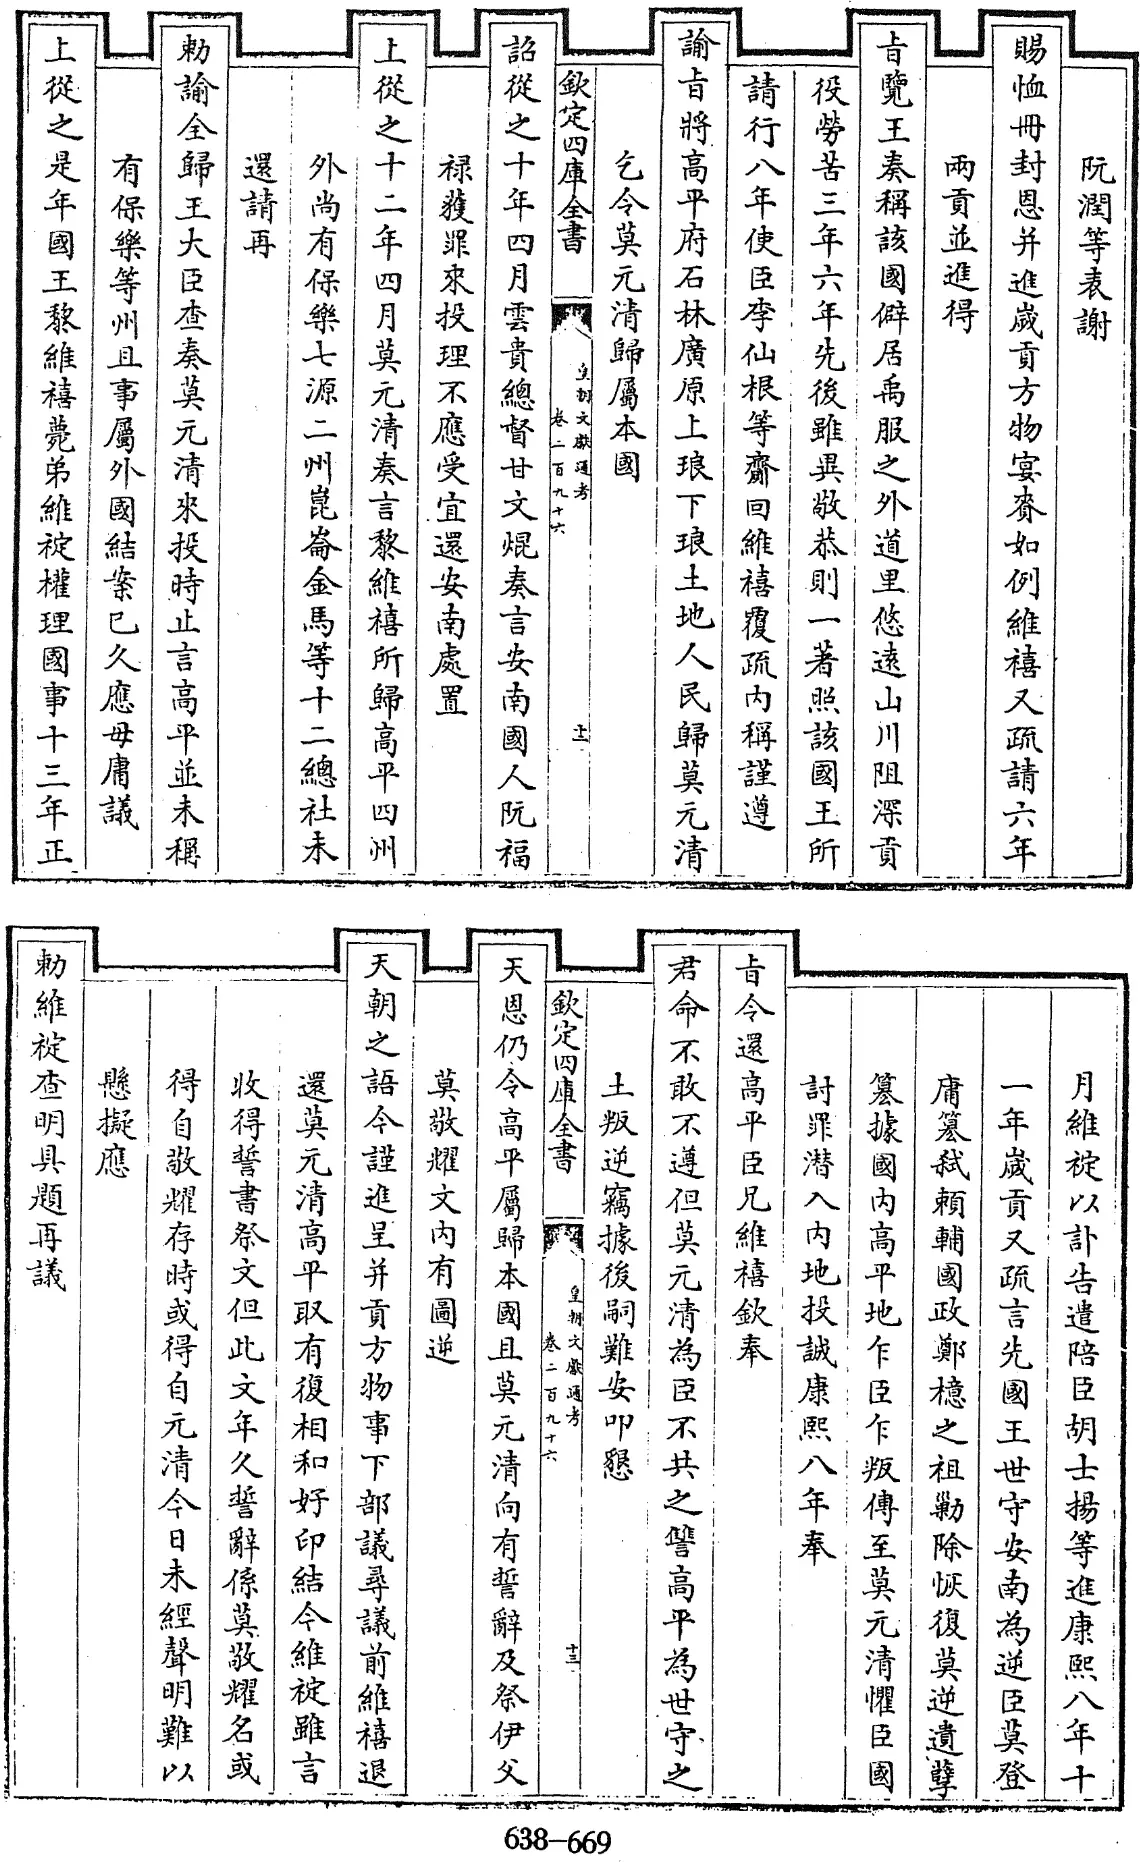 阮潤等表謝
賜恤冊封恩并進歲貢方物宴賚如例維禧又疏請六年
兩貢並進得
旨覽王奏稱該國僻居禹服之外道里悠遠山川阻深貢
役勞苦三年六年先後雖異敬恭則一著照該國王所
請行八年使臣李仙根等齎回維禧覆疏內稱謹遵
諭旨將高平府石林廣原上琅下琅土地人民歸莫元清
乞令莫元清歸屬本國
欽定四庫全書
皇朝文獻通考
卷二百九十六
十二
詔從之十年四月雲貴總督甘文焜奏言安南國人阮福
祿獲罪來投理不應受宜還安南處置
上從之十二年四月莫元清奏言黎維禧所歸高平四州
外尚有保樂七源二州崑崙金馬等十二總社未
還請再
勅諭全歸王大臣查奏莫元清來投時止言高平並未稱
有保樂等州且事屬外國結案已久應毋庸議
上從之是年國王黎維禧薨弟維䄇權理國事十三年正
月維䄇以訃告遣陪臣胡士揚等進康熙八年十
一年歲貢又疏言先國王世守安南為逆臣莫登
庸簒弒賴輔國政鄭檍之祖勦除恢復莫逆遺孽
簒據國內高平地乍臣乍叛傳至莫元清懼臣國
討罪潛入內地投誠康熙八年奉
旨令還高平臣兄維禧欽奉
君命不敢不遵但莫元清為臣不共之讐高平為世守之
土叛逆竊據後嗣難安叩懇
欽定四庫全書
皇朝文獻通考
卷二百九十六
十三
天恩仍令高平屬歸本國且莫元清向有誓辭及祭伊父
莫敬耀文內有圖逆
天朝之語今謹進呈并貢方物事下部議尋議前維禧退
還莫元清高平取有復相和好印結今維䄇雖言
收得誓書祭文但此文年久誓辭係莫敬耀名或
得自敬耀存時或得自元清今日未經聲明難以
懸擬應
勅維䄇查明具題再議
638-669